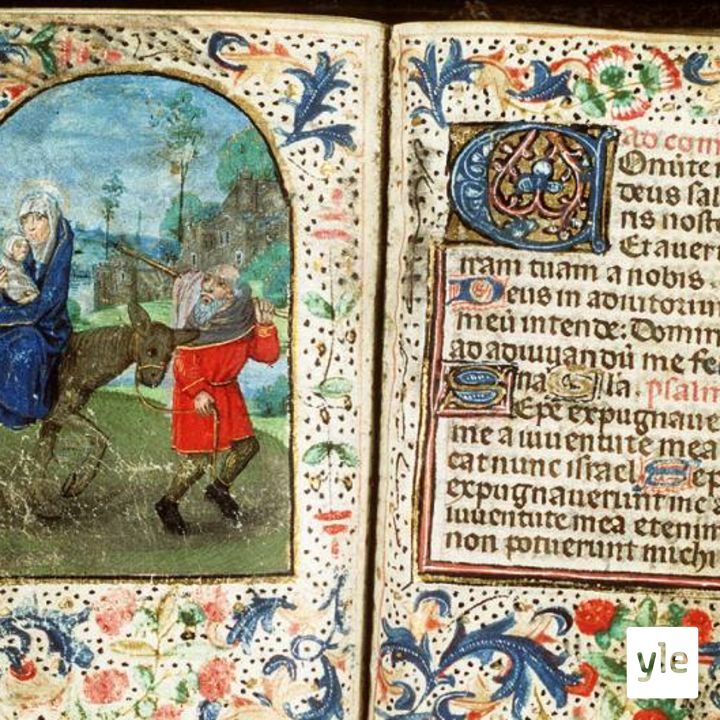 ad com
Onuite
deus sal
ris nost
Et auert
iram tuam a nobis
Deus in adiutoriu
meū intende: Domin
ad adiuuandū me fe
Gloria
psalm
Sepe expugnaue
me a iuuentute mea
cat nunc israel Sep
expugnauerunt me
iuuentute mea etenim
non potuerunt michi
yle